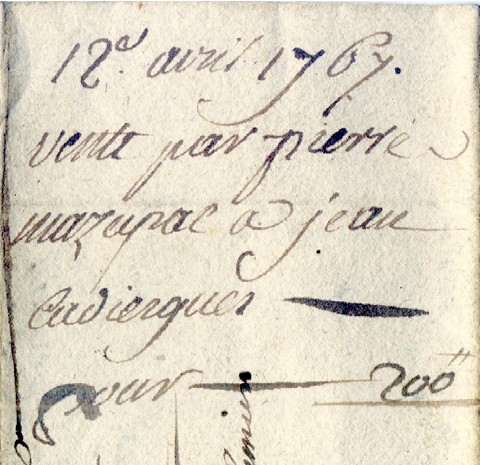 12e avril 1767.
vente par pierre
mazepac a jean
Cadiergues
pour 200"